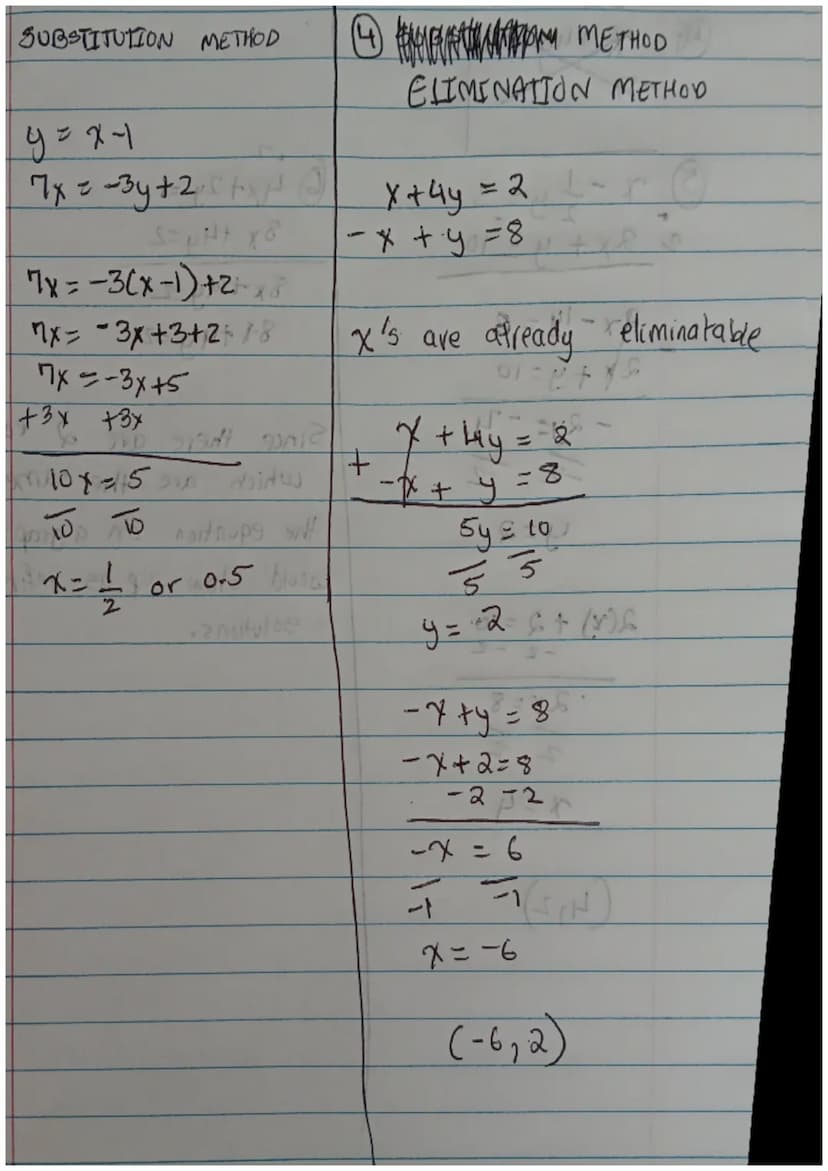 SUBSTITUTION METHOD
y = x-1
7x = -3y+2
7x = -3(x-1)+2
7x = -3x+3+2
7x = -3x+5
+3x +3x
10x = 5
10 10
x = 1/2 or 0.5
④ METHOD
ELIMINATION METHOD
x+4y = 2
-x + y = 8
x's are already eliminatable
x + 4y = 2
+ -x + y = 8
5y = 10
5 5
y = 2
-x+y = 8
-x+2=8
-2 -2
-x = 6
-1 -1
x = -6
(-6,2)